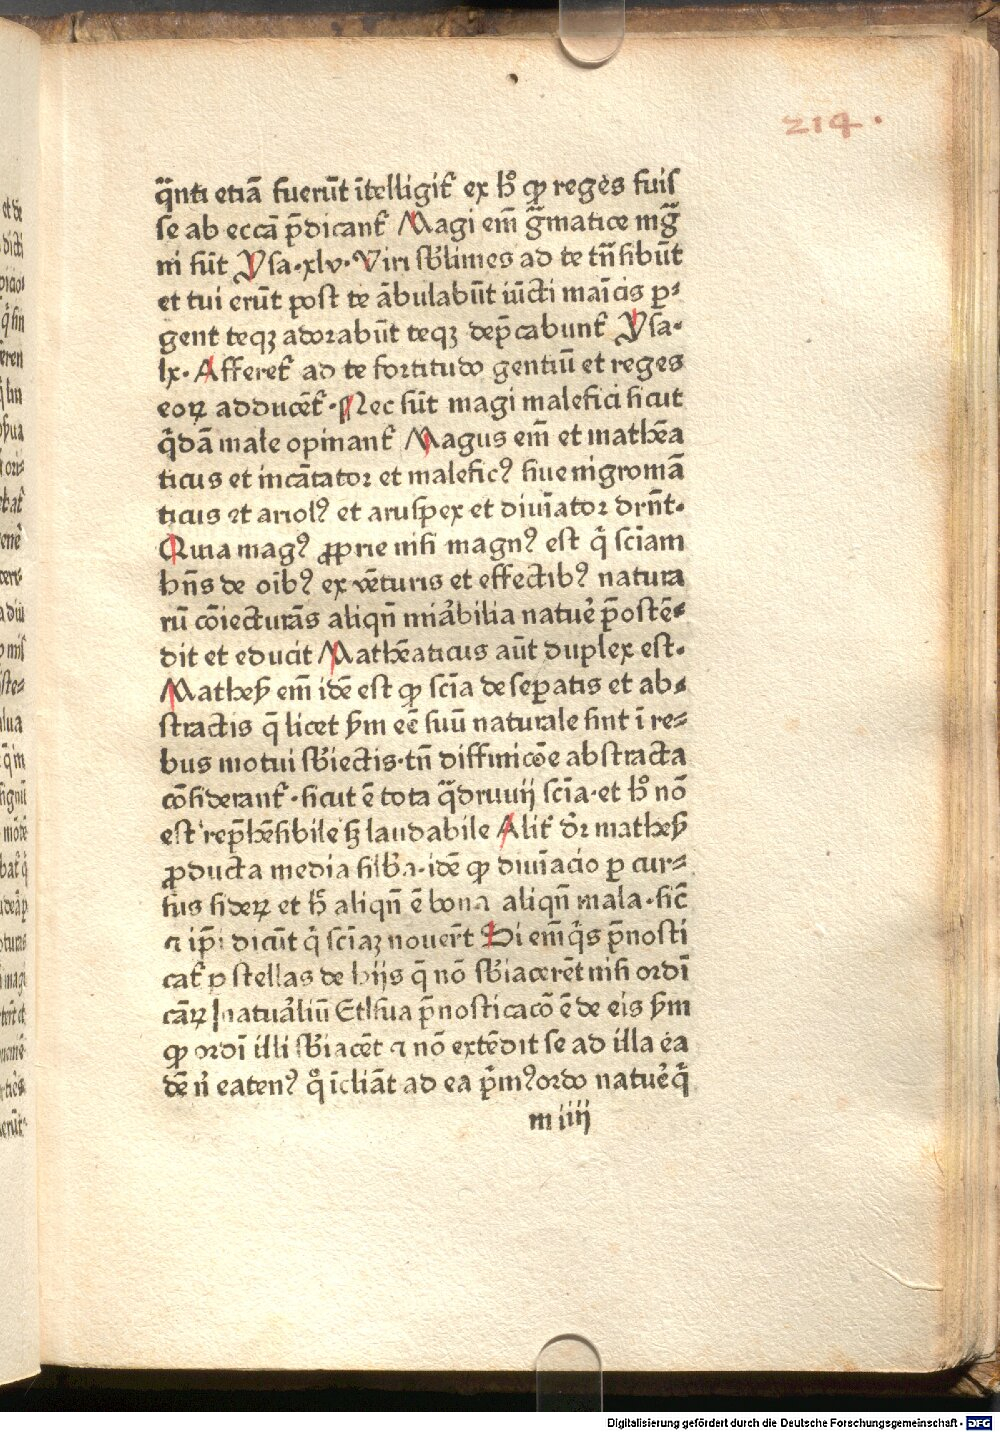 214.
q̄nti etiā fuerūt ītelligit᷑ ex hͦ ꝙ reges fuis
se ab eccā p̄dicant᷑ Magi em̄ gͣmatice mg̅
ni sūt Ysa.xlv. Viri sb̓limes ad te tn̄sibūt
et tui erūt post te ābulabūt iūcti maīcis p̲
gent teqꝫ adorabūt teqꝫ dep̄cabunt᷑ Ysa.
lx. Afferet᷑ ad te fortitudo gentiū et reges
eoꝝ adducēt᷑. Nec sūt magi malefici sicut
q̄dā male opinant᷑ Magus em̄ et mathēa
ticus et incātator et maleficꝰ siue nigromā
ticus et ariolꝰ et aruspex et diuīator drn̄t.
Quia magꝰ ꝓprie nisi magnꝰ est q̇ sciam
hn̄s de oībꝰ ex vēturis et effectibꝰ natura
rū cōiecturās aliqn̄ mirabilia nature p̄ostē⸗
dit et educit Mathēaticus aūt duplex est.
Mathesꝭ em̄ idē est ꝙ scīa de sepatis et ab⸗
stractis q̄ licet sꝫm eē suū naturale sint ī re⸗
bus motui sb̓iectis.tn̄ diffinicōe abstracta
cōsiderant᷑.sicut ē tota q̄druuij scīa.et hͦ nō
est rep̄hēsibile sꝫ laudabile Alit᷑ dr̄ mathesꝭ
ꝓducta media silba.idē ꝙ diuīacio ꝑ cur⸗
sus sideꝝ et hꝭ aliqn̄ ē bona aliqn̄ mala.sic̄
⁊ ip̄i dicūt q̇ scīaꝫ nouert̄ Di em̄ q̇s p̄nosti
cat᷑ ꝑ stellas de hijs q̄ nō sb̓iacerēt nisi ordī
cāꝝ natuᷓliū Et sua p̄nosticacō ē de eis sꝫm
ꝙ ordī illi sb̓iacēt ⁊ nō extēdit se ad illa ea
dē n̄ eatenꝰ qͦ īcliāt ad ea p̄mꝰ ordo natue q̇
m iiij
Digitalisierung gefördert durch die Deutsche Forschungsgemeinschaft - DFG